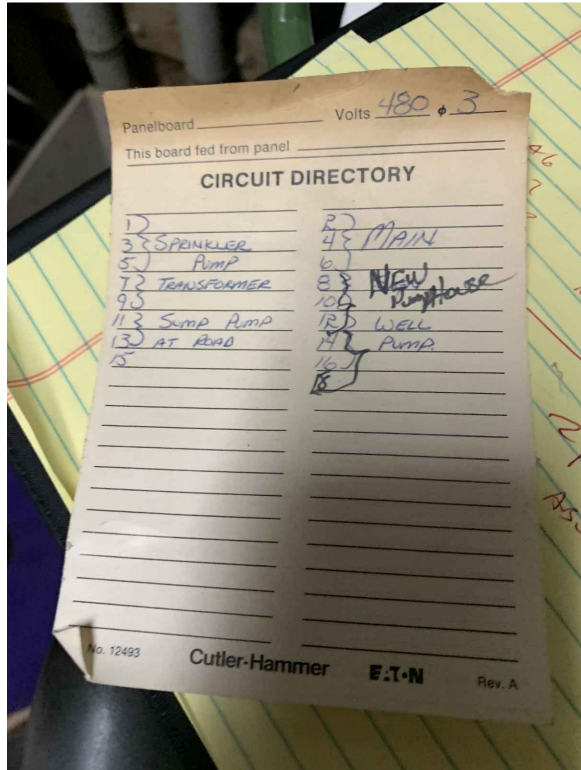 Panelboard Volts 480 ϕ 3
This board fed from panel
CIRCUIT DIRECTORY
1
3 SPRINKLER
5 PUMP
7 TRANSFORMER
9
11 SUMP PUMP
13 AT ROAD
15
2
4 MAIN
6
8 NEW
10 PUMPHOUSE
12 WELL
14 PUMP.
16
18
No. 12493 Cutler-Hammer E·T·N Rev. A